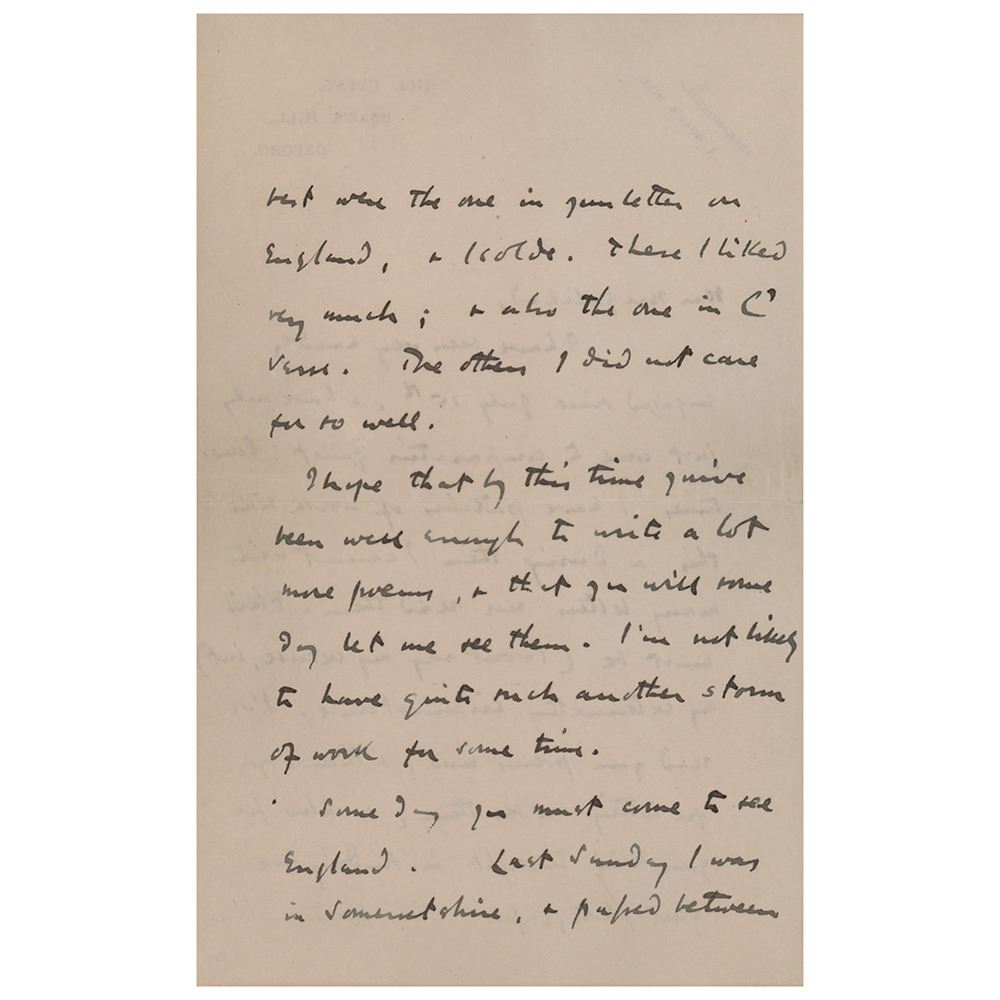 best were the one in your letter on
England, & Isolde. These I liked
very much; & also the one in C'
verse. The others I did not care
for so well.
I hope that by this time you've
been well enough to write a lot
more poems, & that you will some
day let me see them. I'm not likely
to have quite such another storm
of work for some time.
Some day you must come to see
England. Last Sunday I was
in Somersetshire, & passed between